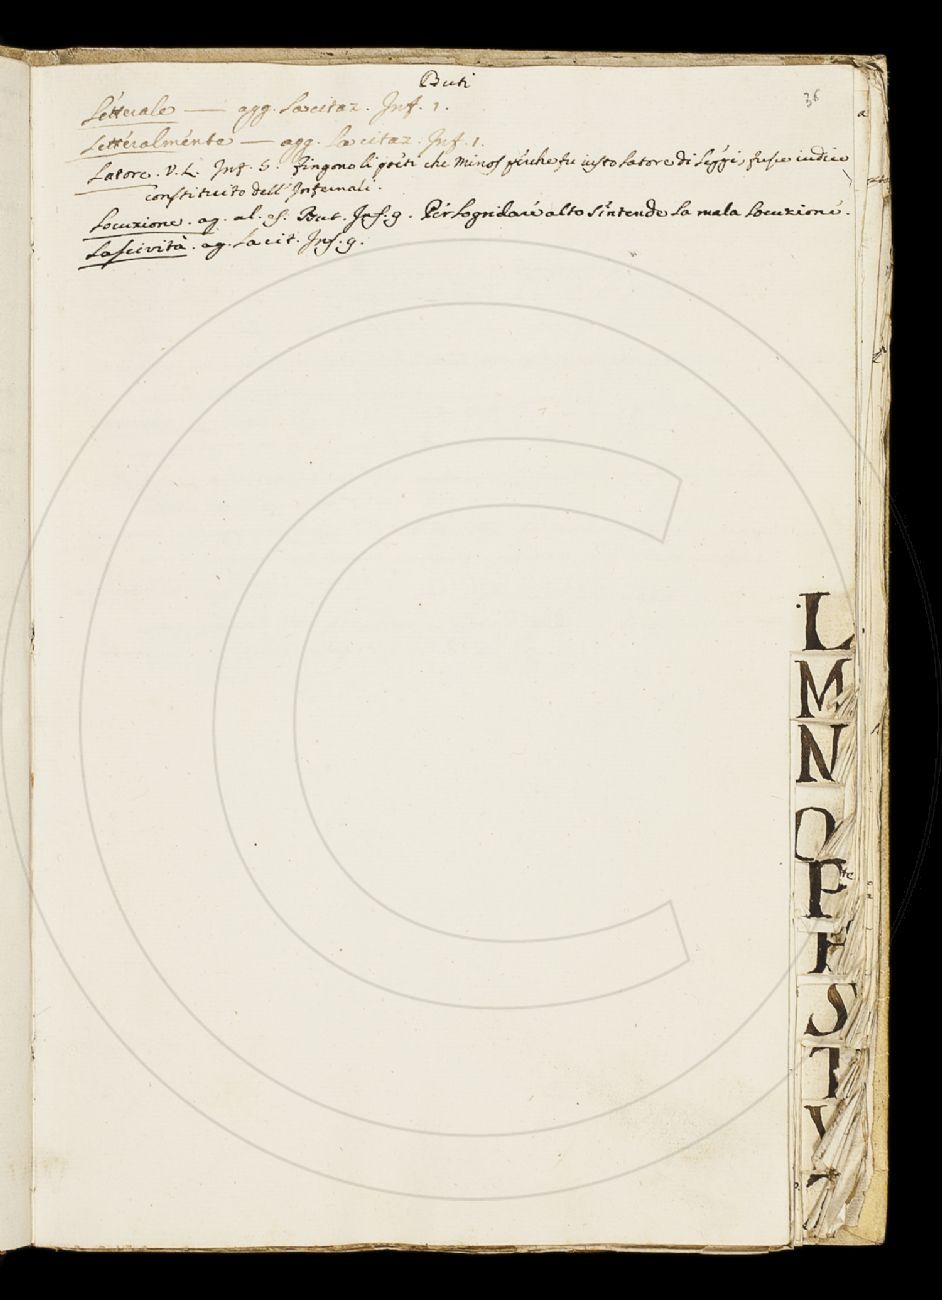 Buti
36
Letterale — agg. la citaz. Inf. 1.
Letteralmente — agg. la citaz. Inf. 1.
Latore. V. L. Inf. 5. fingono li poeti che Minos perche fu iusto latore di leggi, fusse iudice
constituito dell'Infernali.
Locuzione. ag. al. es. But. Inf. 9. Per lo gridare alto s'intende la mala locuzione.
Lascività. ag. la cit. Inf. 9.
L
M
N
O
P
S
T
V